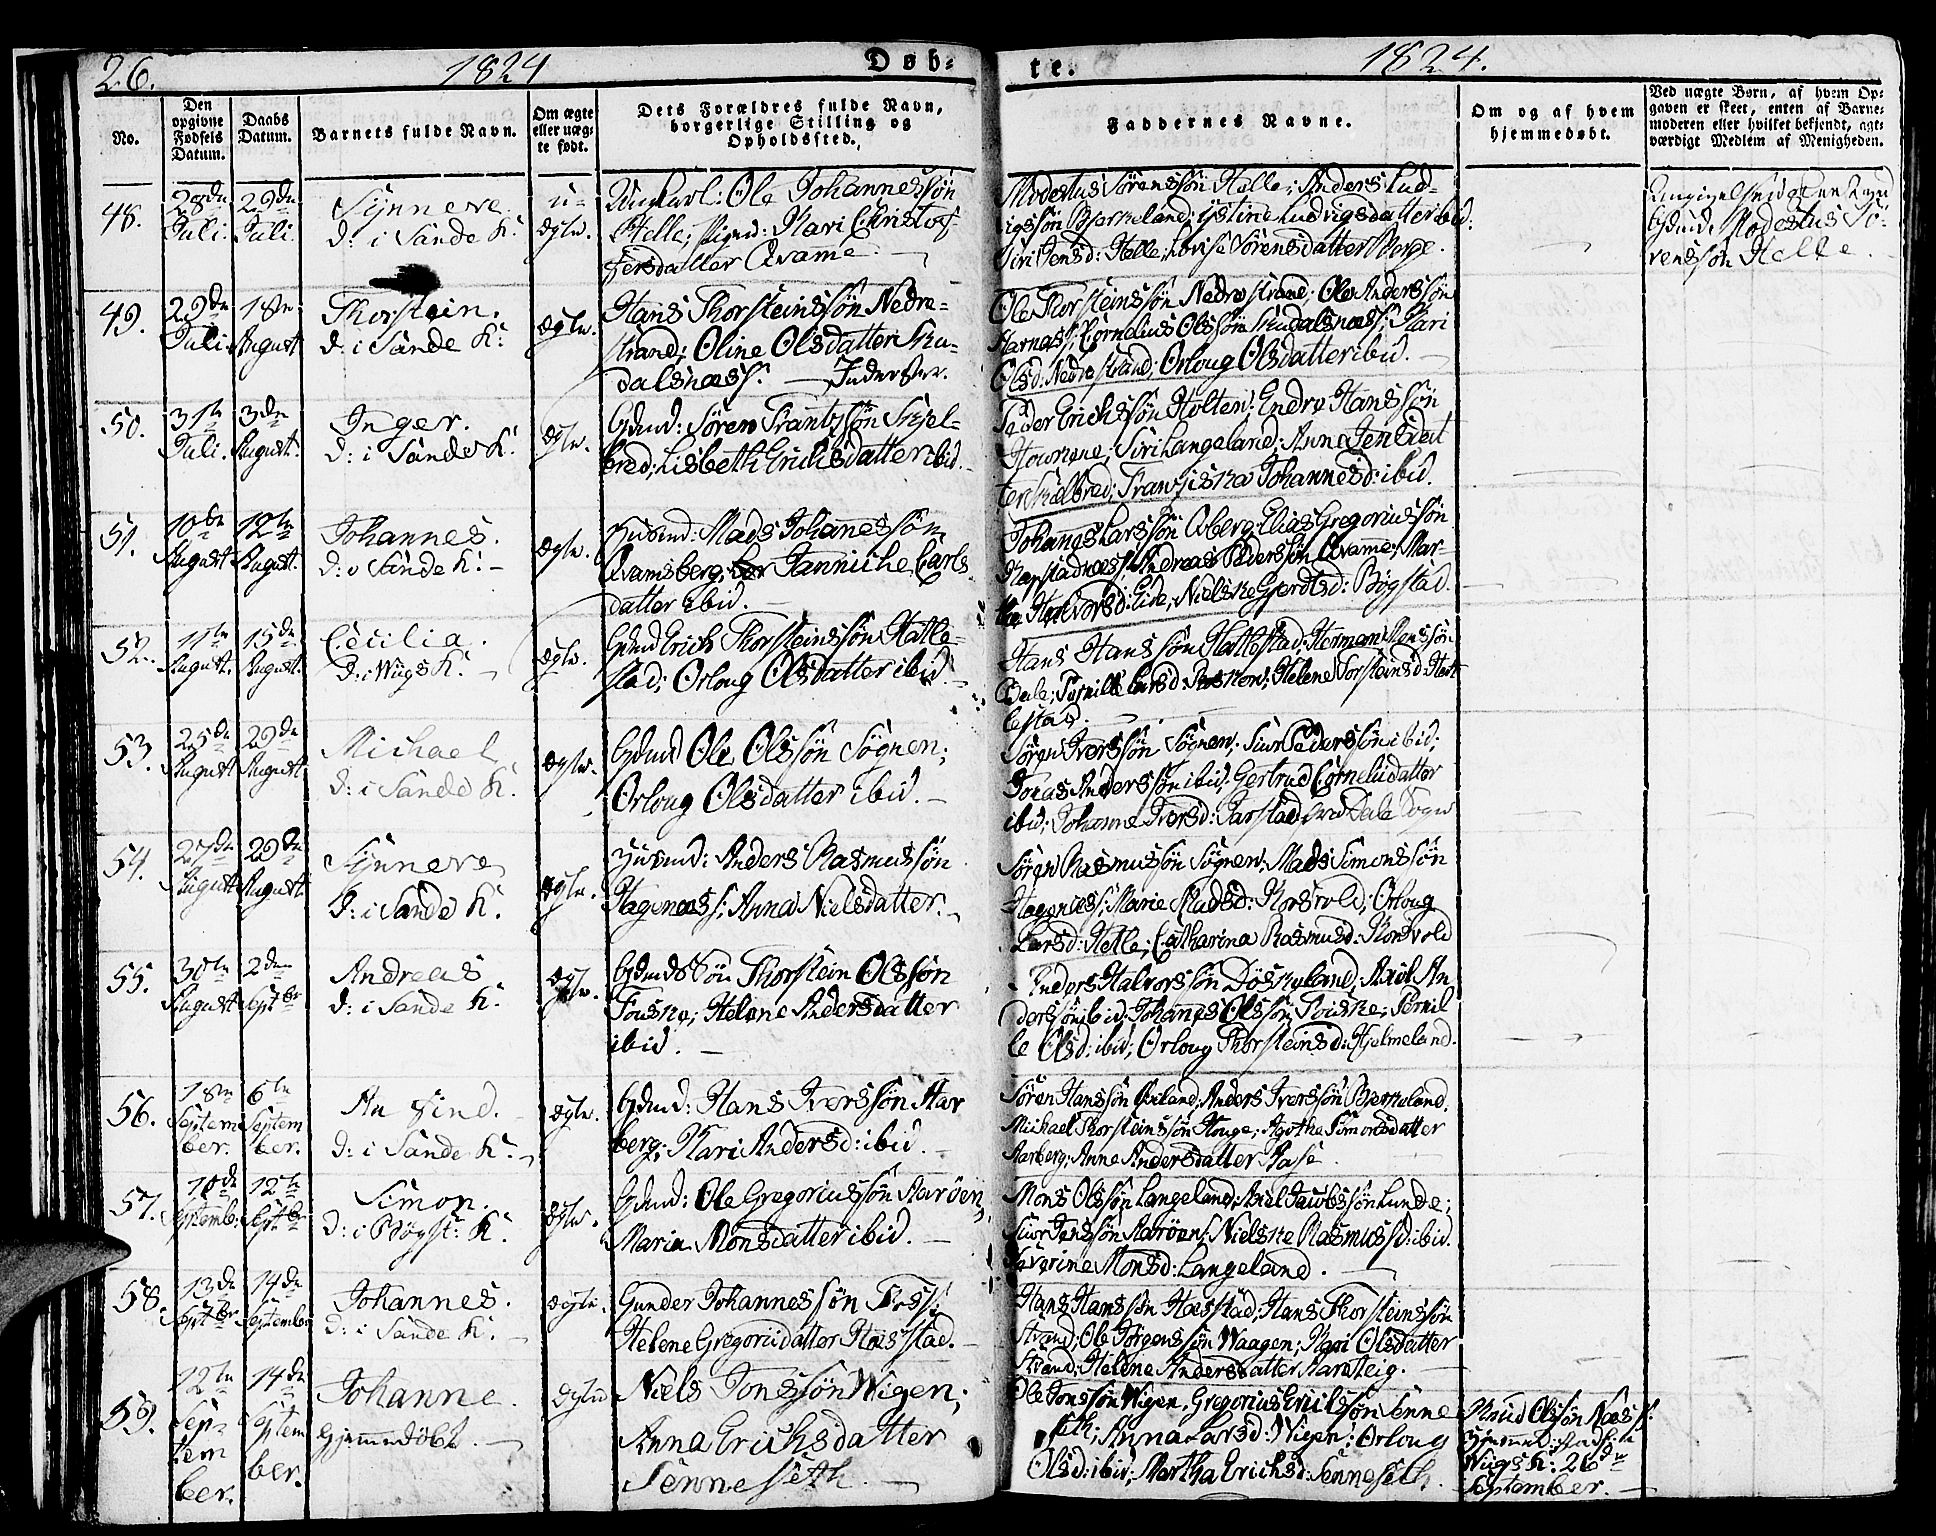 26.
1824
Døb-
te.
1824.
No.
Den opgivne Fødsels Datum.
Daabs Datum.
Barnets fulde Navn.
Om ægte eller uægte født.
Dets Forældres fulde Navn, borgerlige Stilling og Opholdssted.
Faddernes Navne.
Om og af hvem hjemmedøbt.
Ved uægte Børn, af hvem Opgaven er skeet, enten af Barnemoderen eller hvilket bekjendt, agtværdigt Medlem af Menigheden.
48.
28de Juli.
29de Juli.
Synneve
d: i Sande K:
u-
ægte.
Ungkarl: Ole Johannessøn
Helle; Pigen: Kari Christof-
fersdatter Qvamme.
Modestus Sørenssøn Helle; Anders Lud-
vigssøn Bjerkeland; Ystine Ludvigsdatter ibid:
Siri Jensd: Helle; Lovise Sørensdatter Berge.
Modestus Sø-
renssøn Helle.
49.
29de Juli
1ste August
Thorstein.
d: i Sande K:
ægte.
Hans Thorsteinssøn Nedre-
strand; Oline Olsdatter Sku-
dalsnæss. — Inderster.
Ole Thorsteinssøn Nedrestrand; Ole Anderssøn
Harnæss; Cornelius Olssøn Skudalsnæss; Kari
Olsd: Nedrestrand; Orloug Olsdatter ibid.
50.
31te Juli.
3de August.
Inger.
d: i Sande K:
ægte.
Gdmd: Søren Frantzsøn Skjel-
bred; Lisbeth Erichsdatter ibid.
Peder Erichssøn Holten; Endre Hanssøn
Hovrene; Siri Langeland; Anne Jensdat
ter Skelbred; Franziska Johannesd: ibid.
51.
10de August
12te August.
Johannes.
d: i Sande K:
ægte.
Husmd: Mads Johannessøn
Qvamsberg, Jannicke Carls
datter ibid.
Johannes Larssøn Aaberg; Elias Gregoriussøn
Kapstadnæss; Andreas Pederssøn Qvamme; Mar-
the Halvorsd: Eide, Nielske Gjertsd: Bøgstad.
52.
11te August.
15de August.
Cecilia.
d: i Wiigs K:
ægte.
Gdmd Erich Thorsteinssøn Hatle-
stad; Orloug Olsdatter ibid.
Hans Hanssøn Hatlestad; Herman Jenssøn
Dale; Pernille Larsd: Helene Torsteinsd: Hat
lestad.
53.
25de August
29de August
Michael
d: i Sande K:
ægte.
Gdmd Ole Olssøn Sognen;
Orloug Olsdatter ibid.
Søren Iverssøn Sognen; Siur Pederssøn ibid;
Jonas Anderssøn ibid; Gertrud Cornelidatter
ibid; Johanne Iversd: Jarstad ved Dale Sogn
54.
27de August
29de August
Synneve
d: i Sande K.
ægte.
Husmd: Anders Rasmussøn
Hagenæss; Anna Nielsdatter.
Søren Rasmussøn Sognen; Mads Simonssøn
Hagenæss; Marie Madsd: Korsvold; Orloug
Larsd: Hetle; Catharina Rasmusd: Korsvold
55.
30te August
2den Septbr
Andreas
d: i Sande K:
ægte.
Gdmds Søn Thorstein Olssøn
Fouske; Helene Andersdatter
ibid.
Anders Halvorssøn Døskeland; Axel An
derssøn ibid; Johannes Olssøn Fouske; Pernil
le Olsd: ibid; Orloug Thorsteinsd: Hjelmeland.
56.
1ste September.
6te September.
An find.
d: i Sande K:
ægte.
Gdmd: Hans Iverssøn Aar
berg; Kari Andersd: ibid.
Søren Hanssøn Anders Iverssøn Bjerkeland,
Michael Thorsteinssøn Houge; Agothe Simonsdatter
Aarberg; Anne Andersdatter Aase.
57.
10de September
12te Septbr
Simon.
d: i Bøgst: K:
ægte.
Gdmd: Ole Gregoriussøn Aarøen,
Maria Monsdatter ibid.
Mons Olssøn Langeland; Axel Jacobssøn Lunde;
Siur Jenssøn Aarøen; Nielske Rasmussd: ibid.
Severine Monsd: Langeland.
58.
13de Septbr
14de September
Johannes.
d: i Sande K:
ægte.
Gunder Johannessøn Foss;
Helene Gregoriidatter Hæsstad.
Hans Hanssøn Hæsstad; Hans Thorsteinssøn
Strand; Ole Jørgenssøn Waagen; Kari Olsdatter
Strand; Helene Andersdatter Aarsteig.
59.
12te September.
14de September.
Johanne
Hjemmedøbt.
ægte
Niels Jonssøn Wigen;
Anna Erichsdatter
Senneseth.
Ole Jonssøn Wigen, Gregorius Erichssøn Senne
seth; Anna Larsd: Wigen; Orloug
Olsd: ibid; Martha Erichsd: Senneseth.
Knud Olssøn Næss.
Wiigs K: 26de
September.